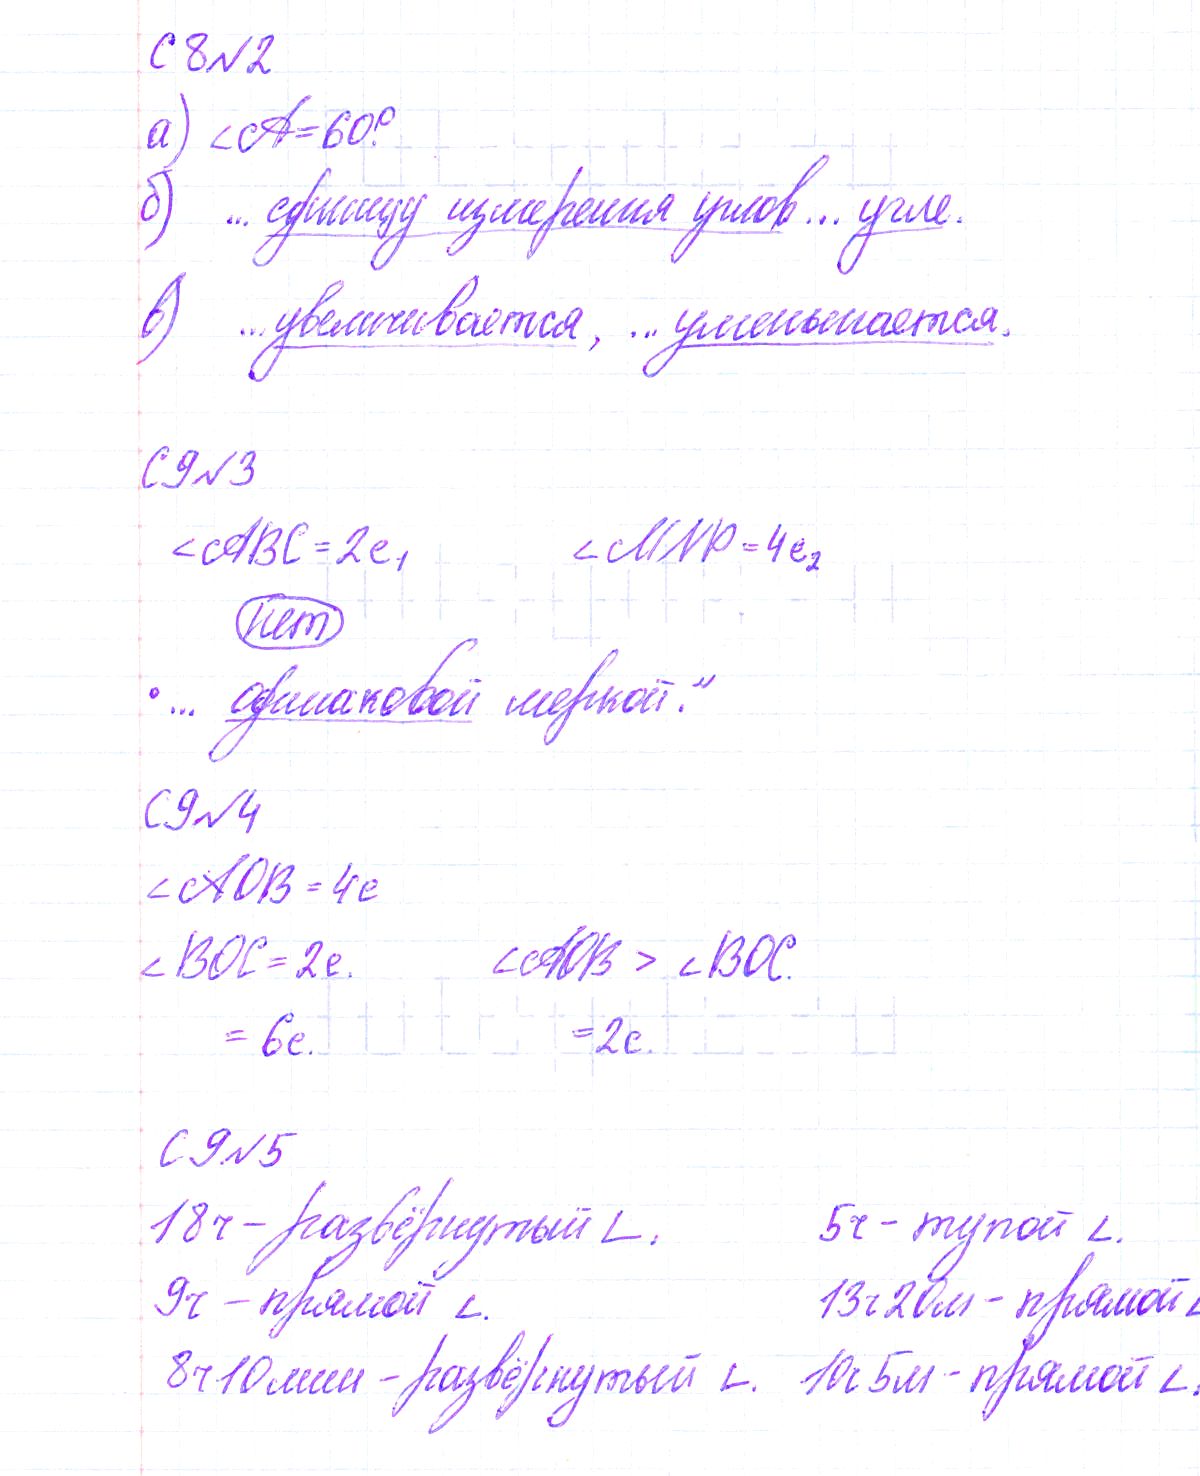 С 8 № 2
а) ∠A = 60°.
б) ... единицу измерения углов ... угле.
в) ... увеличивается, ... уменьшается.
С 9 № 3
∠ABC = 2e₁ ∠MNP = 4e₂
Нет
... одинаковой меркой."
С 9 № 4
∠AOB = 4e
∠BOC = 2e. ∠AOB > ∠BOC.
= 6e. = 2e.
С 9 № 5
18ч – развёрнутый ∠. 5ч – тупой ∠.
9ч – прямой ∠. 13ч 20м – прямой ∠
8ч 10мин – развёрнутый ∠. 10ч 5м – прямой ∠.